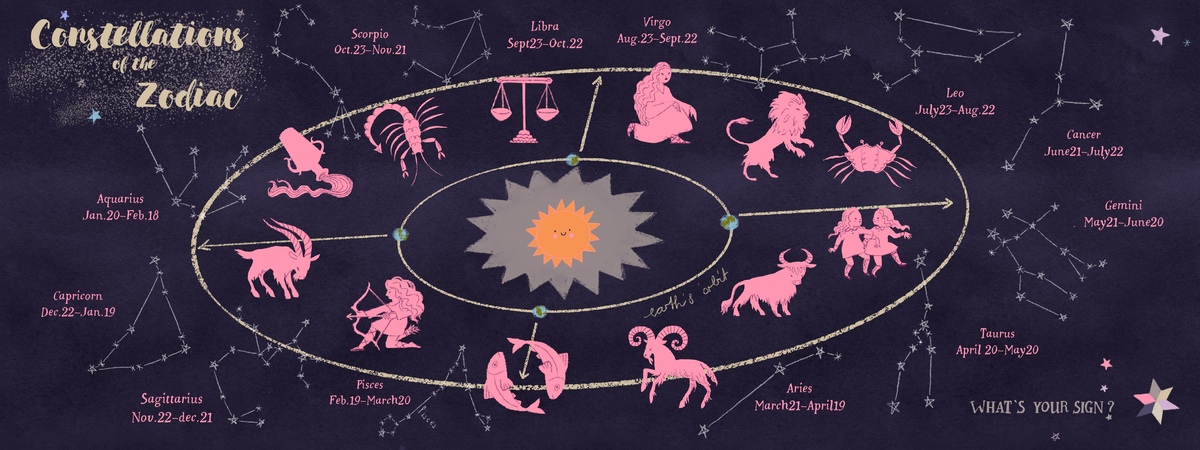 Constellations
of the
Zodiac
Scorpio
Oct.23-Nov.21
Libra
Sept23-Oct.22
Virgo
Aug.23-Sept.22
Leo
July23-Aug.22
Cancer
June21-July22
Aquarius
Jan.20-Feb.18
Gemini
May21-June20
earth's orbit
Capricorn
Dec.22-Jan.19
Taurus
April 20-May20
Sagittarius
Nov.22-dec.21
Pisces
Feb.19-March20
Pisces
Aries
March21-April19
WHAT'S YOUR SIGN?